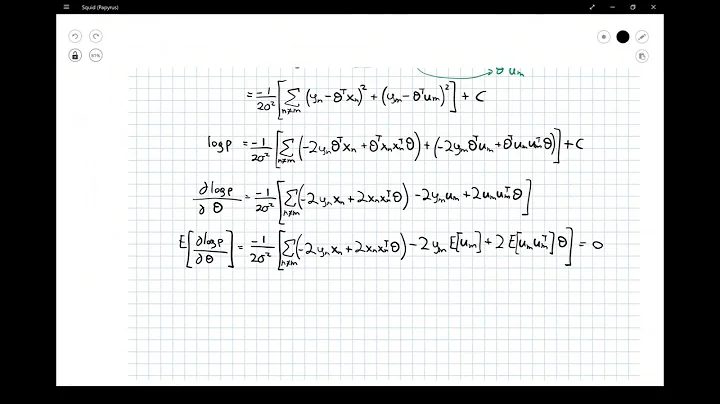 Squid (Papyrus)
97%
θᵀuₘ
= -1/2σ² [ ∑ₙ≠ₘ (yₙ - θᵀxₙ)² + (yₘ - θᵀuₘ)² ] + C
log p = -1/2σ² [ ∑ₙ≠ₘ (-2yₙθᵀxₙ + θᵀxₙxₙᵀθ) + (-2yₘθᵀuₘ + θᵀuₘuₘᵀθ) ] + C
∂log p/∂θ = -1/2σ² [ ∑ₙ≠ₘ (-2yₙxₙ + 2xₙxₙᵀθ) - 2yₘuₘ + 2uₘuₘᵀθ ]
E[∂log p/∂θ] = -1/2σ² [ ∑ₙ≠ₘ (-2yₙxₙ + 2xₙxₙᵀθ) - 2yₘ E[uₘ] + 2 E[uₘuₘᵀ]θ ] = 0